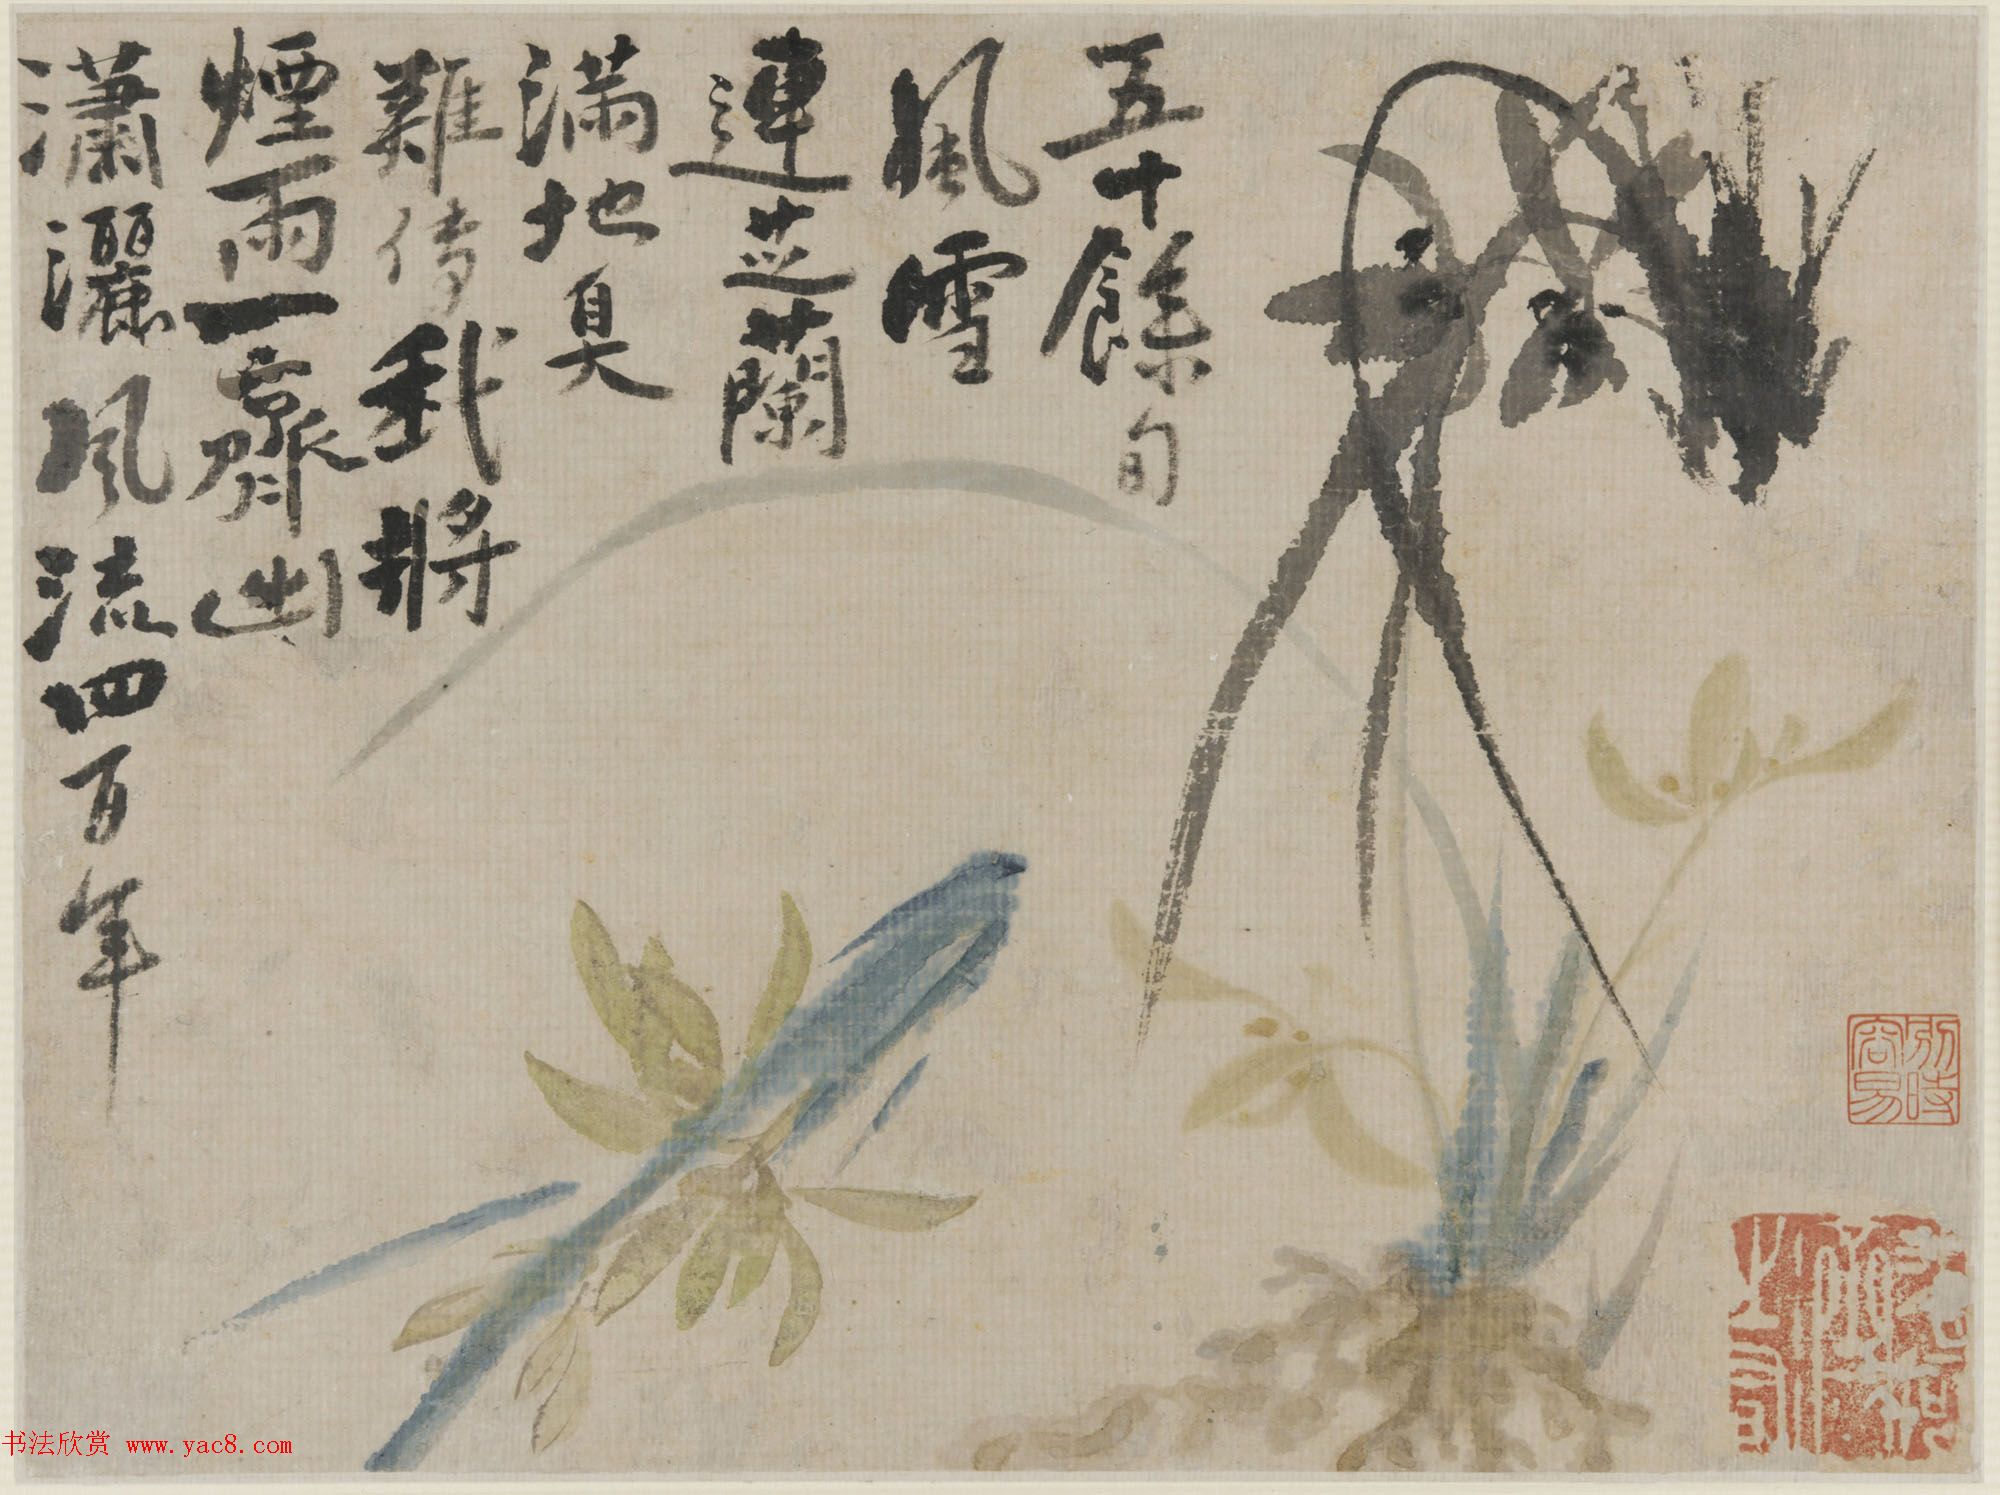 五十餘旬
風雪
連芝蘭
滿地臭
難傳我將
煙雨一齊出
瀟灑風流四百年
別時
容易
书法欣赏 www.yac8.com